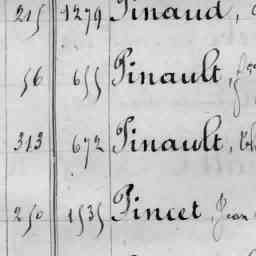 215 1279 Pinaud,
56 655 Pinault,
313 672 Pinault,
250 1535 Pincet, Jean